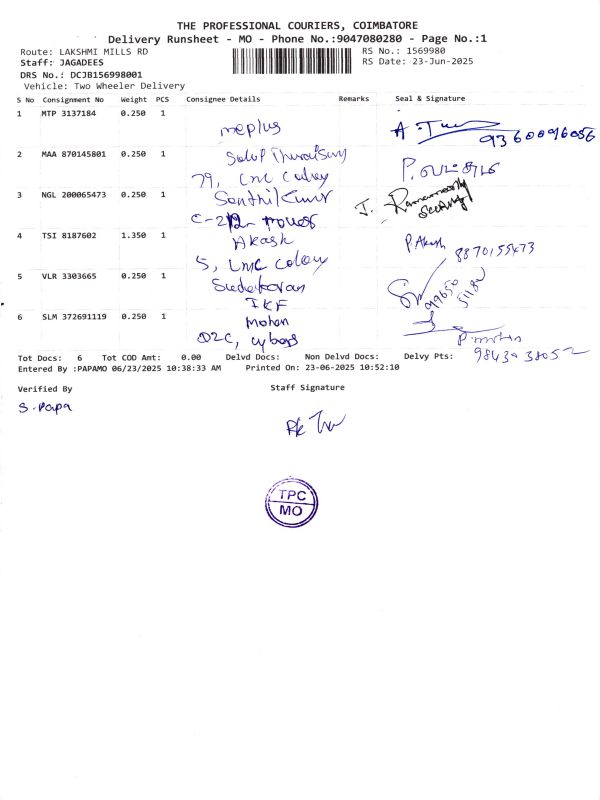 THE PROFESSIONAL COURIERS, COIMBATORE
Delivery Runsheet - MO - Phone No.:9047080280 - Page No.:1
Route: LAKSHMI MILLS RD RS No.: 1569980
Staff: JAGADEES RS Date: 23-Jun-2025
DRS No.: DCJB156998001
Vehicle: Two Wheeler Delivery
S No Consignment No Weight PCS Consignee Details Remarks Seal & Signature
1 MTP 3137184 0.250 1
meplus 9360096056
2 MAA 870145801 0.250 1
79, Lmc Colony
3 NGL 200065473 0.250 1
Senthil Kumar
4 TSI 8187602 1.350 1
Akash P. Akash 8870155473
5, LMC colony
5 VLR 3303665 0.250 1
Sudakaran
IKF
6 SLM 372691119 0.250 1
Mohan P. mohan
Tot Docs: 6 Tot COD Amt: 0.00 Delvd Docs: Non Delvd Docs: Delvy Pts:
Entered By :PAPAMO 06/23/2025 10:38:33 AM Printed On: 23-06-2025 10:52:10
Verified By Staff Signature
S. Papa
TPC
MO